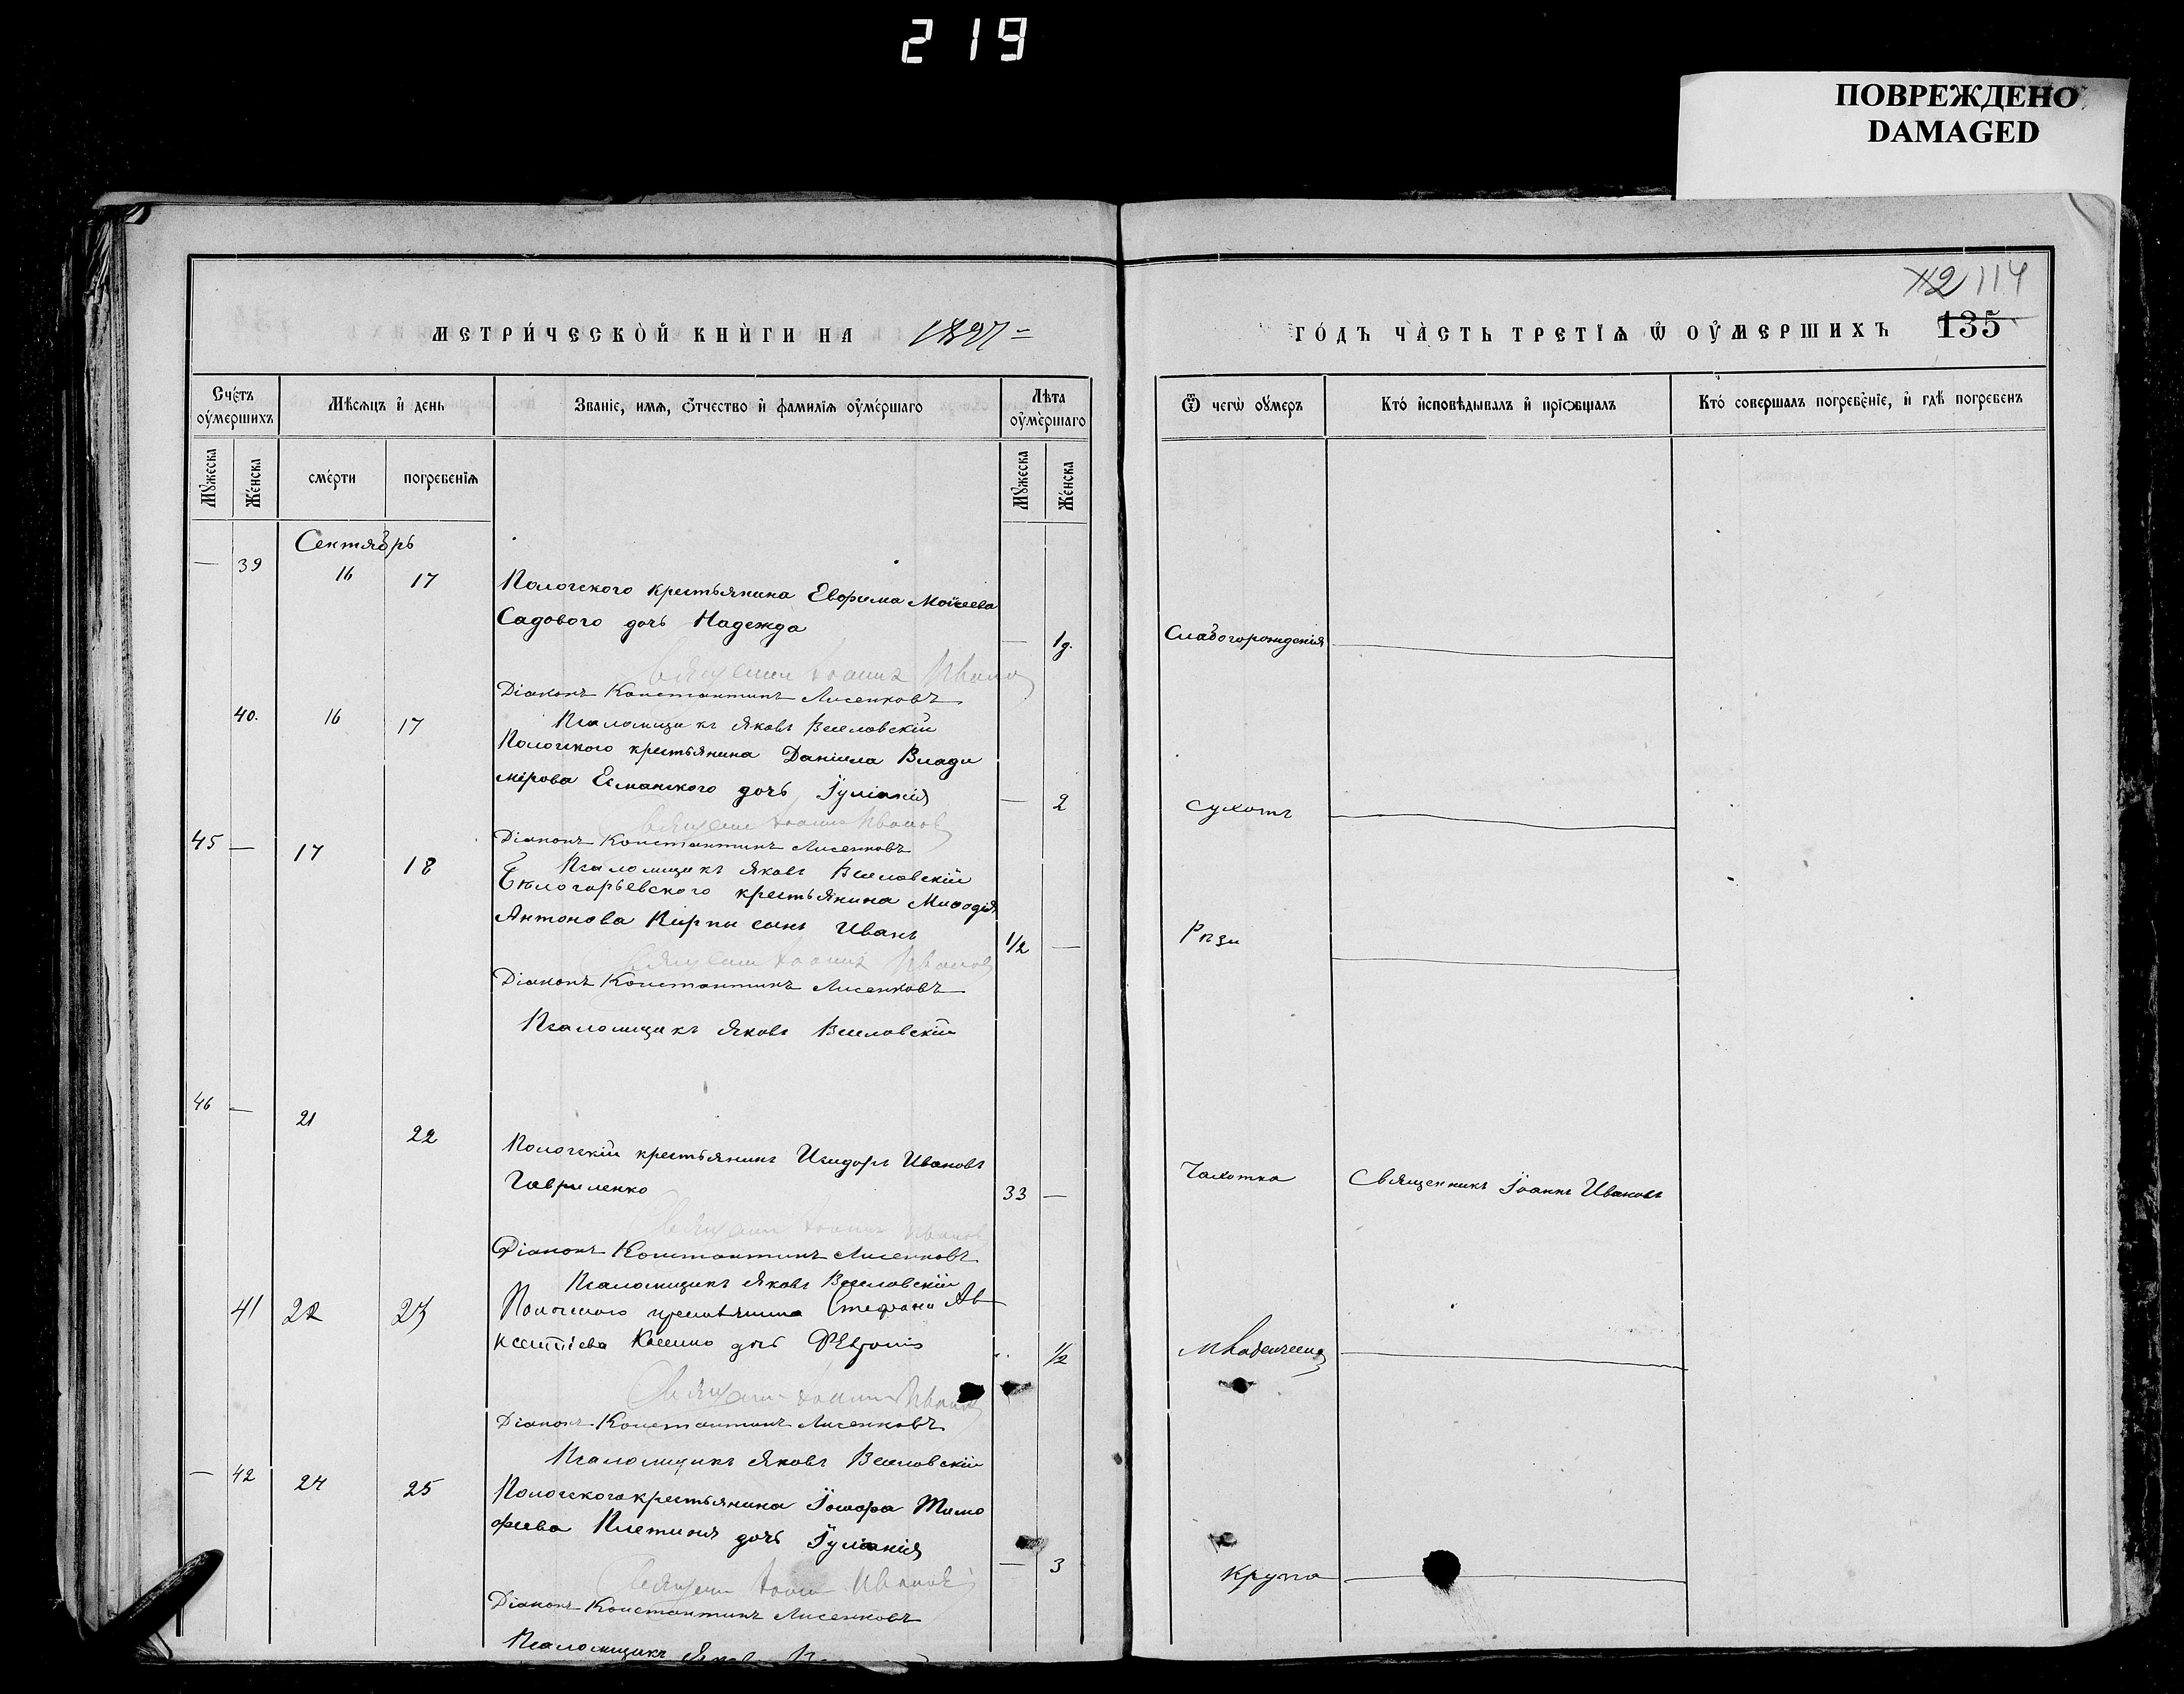 219
ПОВРЕЖДЕНО
DAMAGED
112 114
МЕТРИ́ЧЕСКОЙ КНИ́ГИ НА 1897
ГО́ДЪ ЧА́СТЬ ТРЕТІѦ Ѿ ОУ҆МЕРШИХЪ 135
Сче́тъ оу҆ме́ршихъ
Мѣ́сѧцъ и҆ день
Зва́ніе, и҆мѧ, ѻ҆́тчество и҆ фамилїѧ оу҆ме́ршаго
Лѣ́та оу҆ме́ршаго
Ѿ чегѡ̀ оу҆́меръ
Кто́ и҆сповѣ́дывалъ и҆ прїѻбща́лъ
Кто̀ соверша́лъ погребе́нїе, и҆ гдѣ̀ погребенъ
Мꙋ́жеска
Же́нска
сме́рти
погребе́нїѧ
Мꙋ́жеска
Же́нска
Сентябрь
— 39 16 17 Пологского крестьянина Евфима Моисеева
Садового дочь Надежда — 1 д. Слабогорожденія
Священник Іоаннъ Иванов
Діаконъ Константинъ Лисенковъ
Псаломщикъ Яковъ Веселовскій
40. 16 17 Пологского крестьянина Даніила Влади
мірова Есманского дочь Іуліанія — 2 Сухотъ
Священ Іоаннъ Иванов
Діаконъ Константинъ Лисенковъ
Псаломщикъ Яковъ Веселовскій
45 — 17 18 Бѣлогорьевского крестьянина Миѳодія
Антонова Кирпы сынъ Иванъ 1/2 — Рѣзи
Священ Іоаннъ Иванов
Діаконъ Константинъ Лисенковъ
Псаломщикъ Яковъ Веселовскій
46 — 21 22 Пологскій крестьянинъ Исидоръ Ивановъ
Гавриленко 33 — Чахотка Священникъ Іоаннъ Ивановъ
Священ Іоаннъ Иванов
Діаконъ Константинъ Лисенковъ
Псаломщикъ Яковъ Веселовскій
41 22 23 Стефана Ав
ксентіева дочь 1/2
Священ Іоаннъ Иванов
Діаконъ Константинъ Лисенковъ
Псаломщикъ Яковъ Веселовскій
— 42 24 25 Пологского крестьянина Тимо
феева Плетиня дочь Іуліанія — 3 Крупа
Священ Іоан Иванов
Діаконъ Константинъ Лисенковъ
Псаломщикъ Яковъ